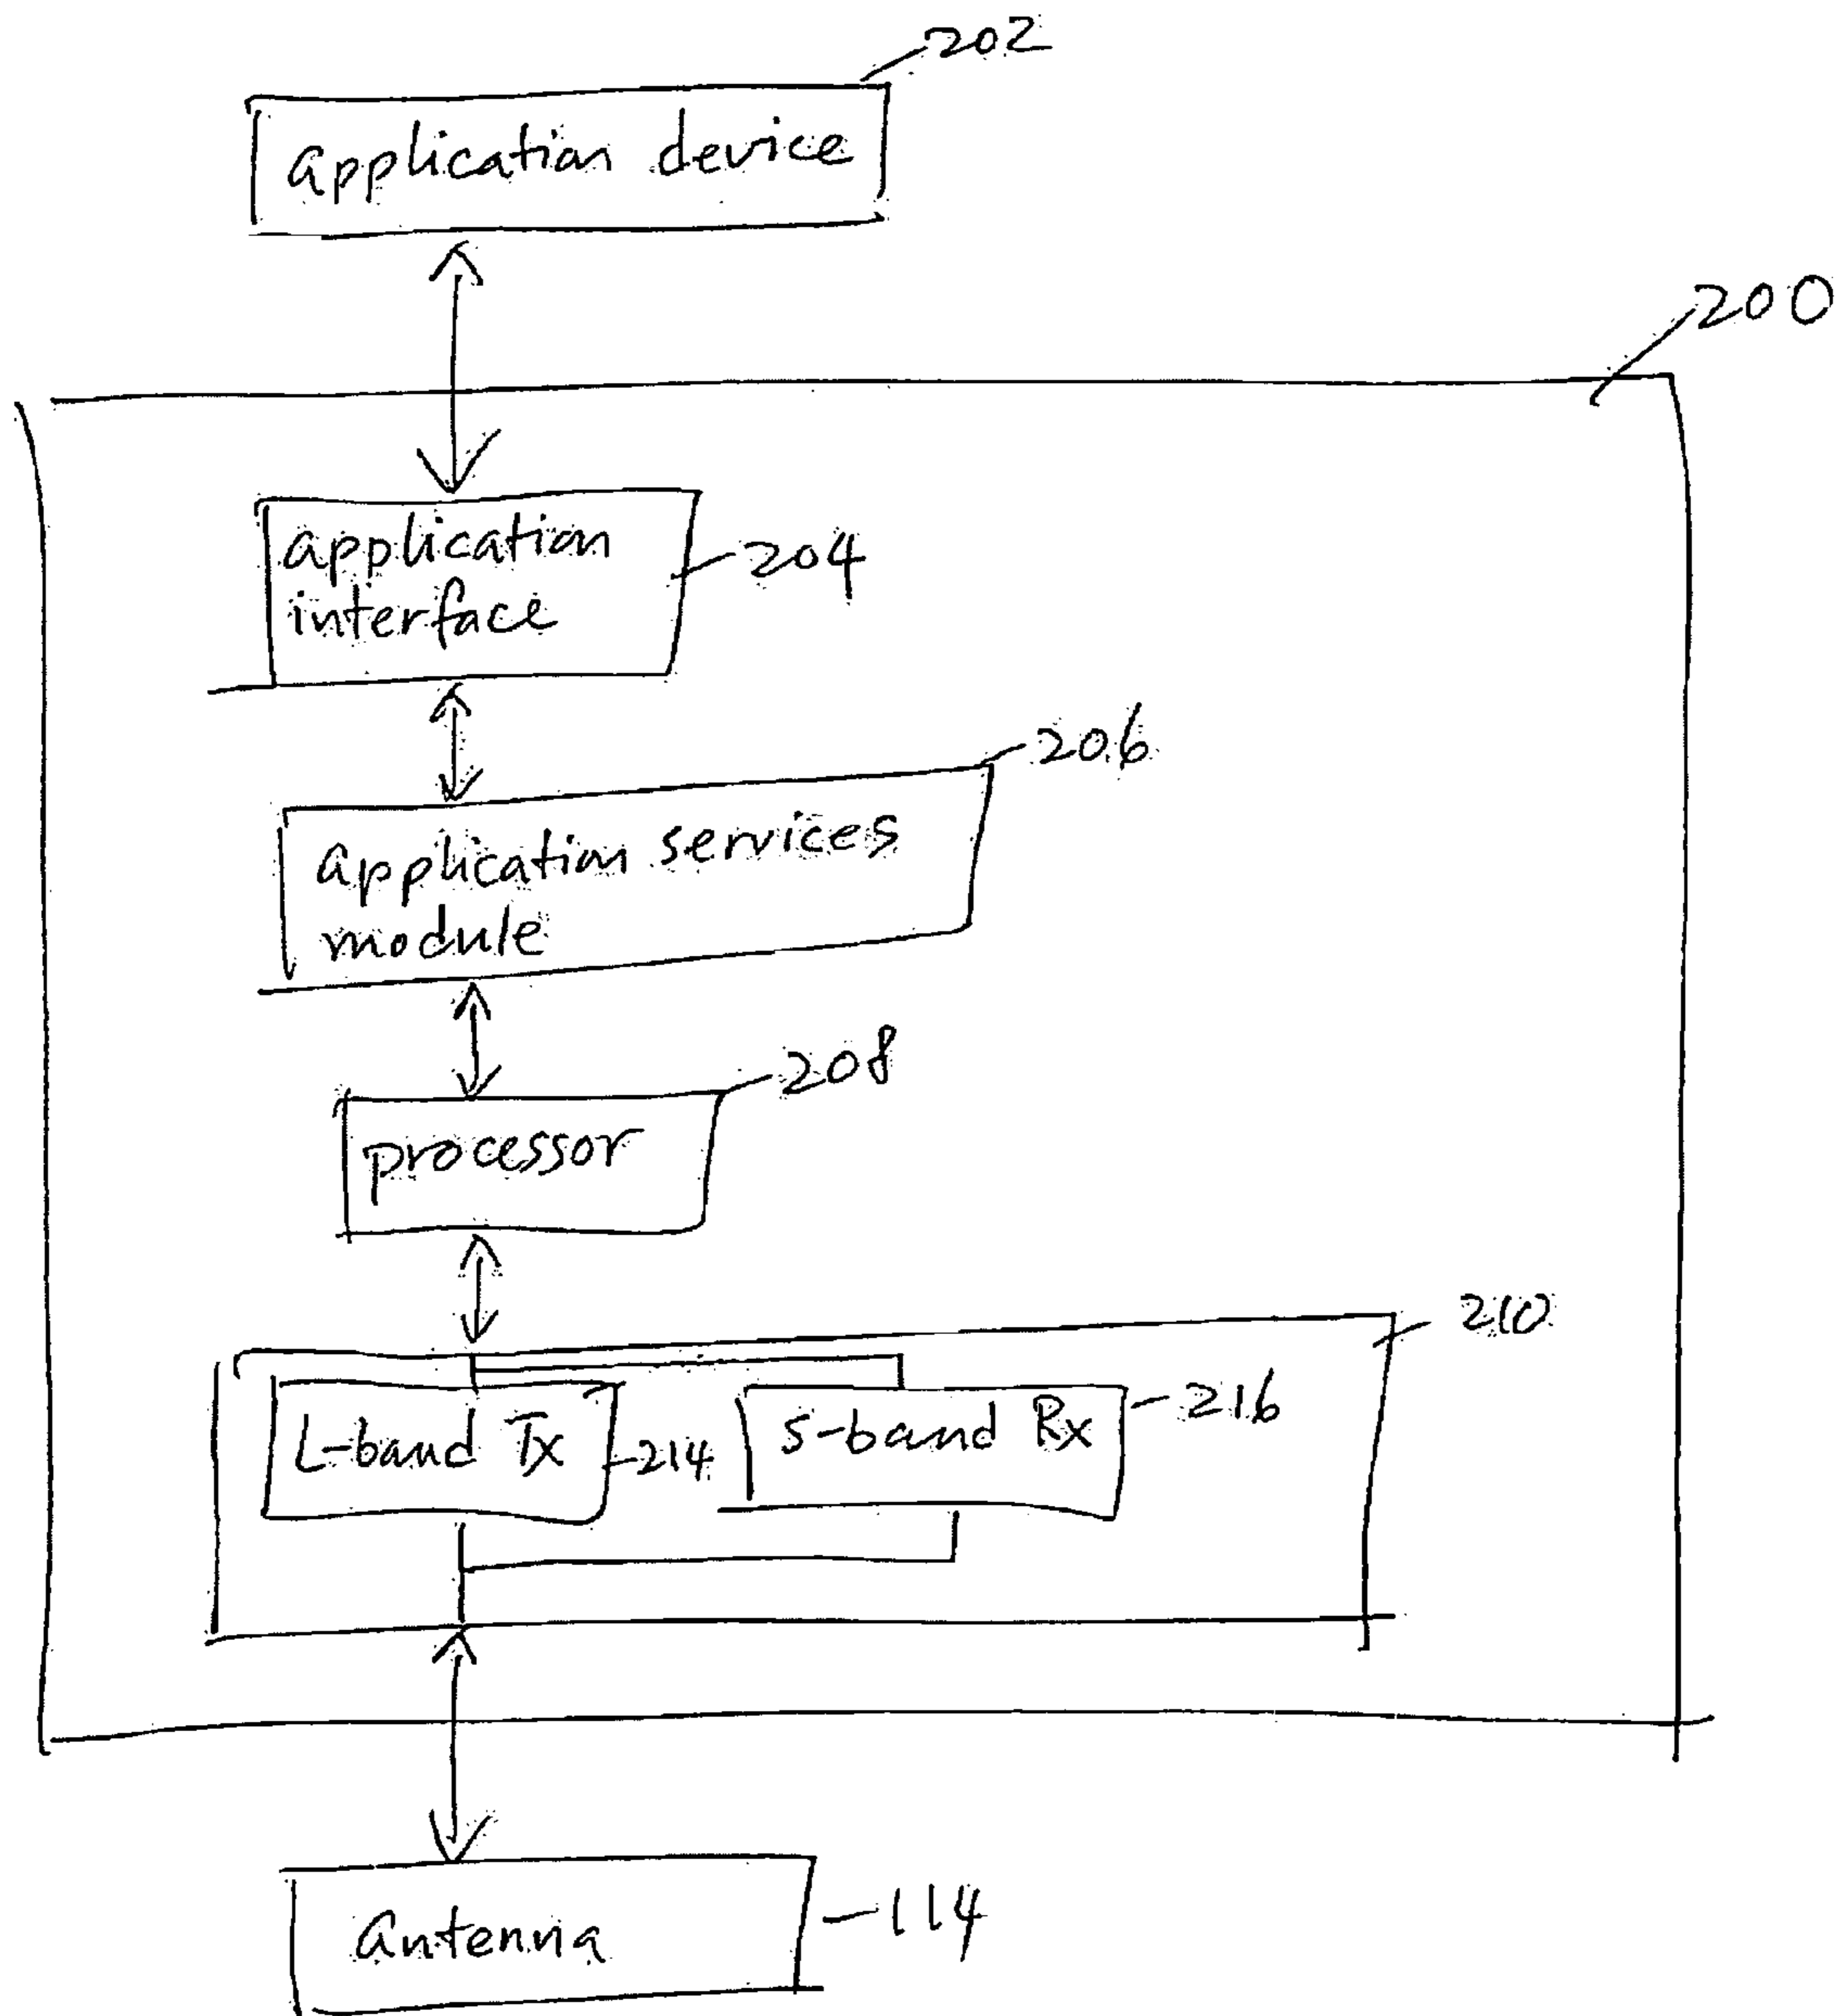 202
application device
200
application
interface
204
206
application services
module
208
processor
210
L-band Tx
214
S-band Rx
216
Antenna
114